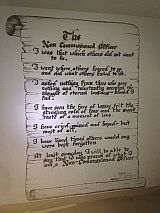 The
Non Commissioned Officer
I was that which others did not want
to be,
I went where others feared to go
and did what others failed to do,
I asked nothing from those who gave
nothing and reluctantly accepted the
thought of eternal
I have seen the face of terror, felt the
stinging cold of fear and the sweet
taste of a moment of love,
I have cried, pained and hoped - but
most of all,
I have lived times others would say
were best forgotten
At least someday I will be able to
say that I was proud of what I
was, a Non Commissioned Officer